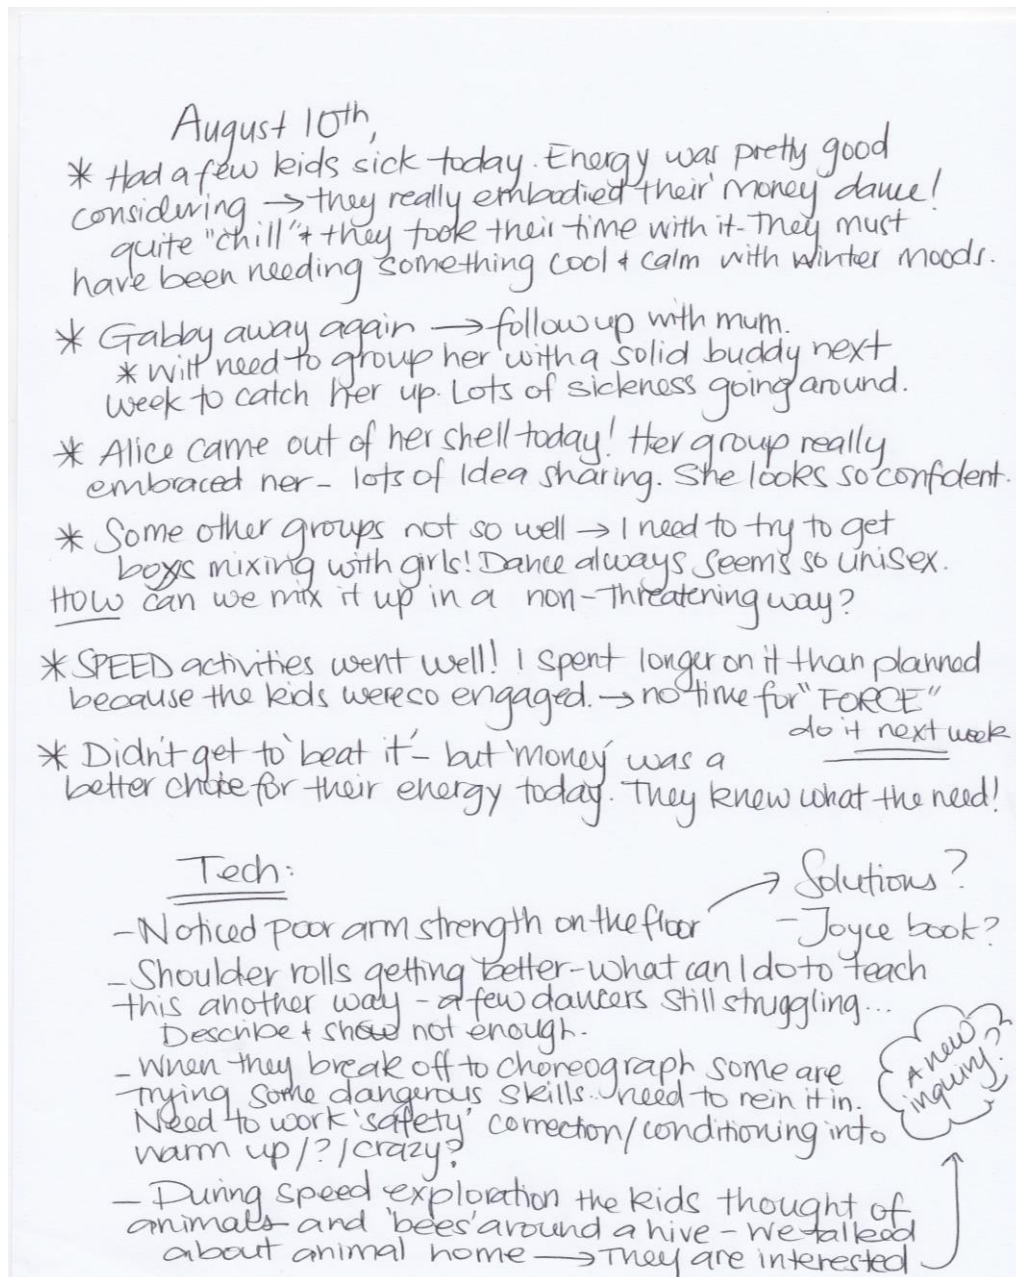 August 10th,
* Had a few kids sick today. Energy was pretty good
considering → they really embodied their 'money' dance!
quite "chill" + they took their time with it - They must
have been needing something cool + calm with winter moods.
* Gabby away again → follow up with mum.
* Will need to group her with a solid buddy next
week to catch her up. Lots of sickness going around.
* Alice came out of her shell today! Her group really
embraced her - lots of Idea sharing. She looks so confident.
* Some other groups not so well → I need to try to get
boys mixing with girls! Dance always seems so unisex.
HOW can we mix it up in a non-threatening way?
* SPEED activities went well! I spent longer on it than planned
because the kids were so engaged. → no time for "FORCE"
do it next week
* Didn't get to 'beat it' - but 'money' was a
better choice for their energy today. They knew what the need!
Tech:
→ Solutions?
- Noticed poor arm strength on the floor
- Joyce book?
- Shoulder rolls getting better - what can I do to teach
this another way - a few dancers still struggling...
Describe + show not enough.
- When they break off to choreograph some are
trying some dangerous skills.. need to rein it in.
Need to work 'safety' correction/conditioning into
warm up/?/crazy?
A new
inquiry?
- During speed exploration the kids thought of
animals and 'bees' around a hive - we talked
about animal home → They are interested